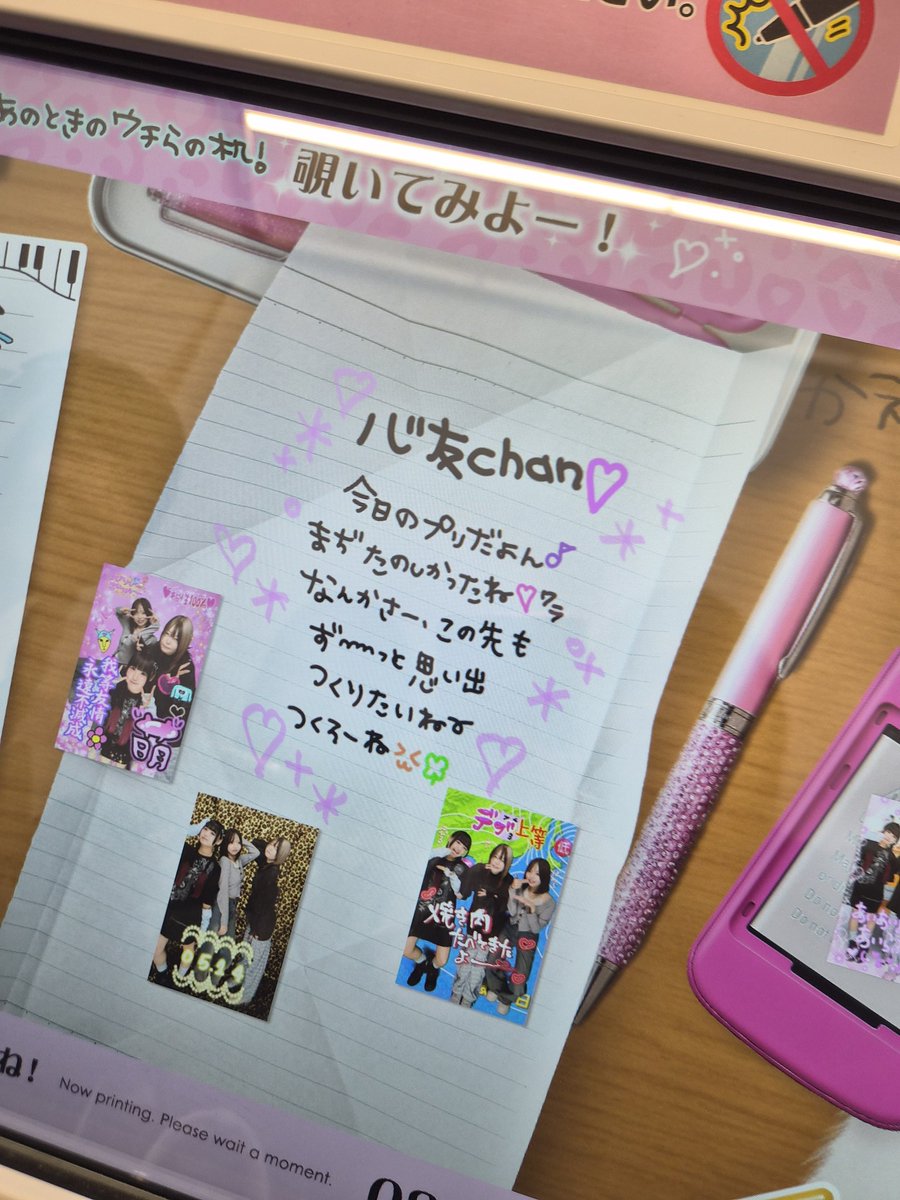 さい。
あのときのウチらの机!
覗いてみよー!
かえ
心友chan♡
今日のプリだよん♪
まぢたのしかったね♡ワラ
なんかさー、この先も
ず〜っと思い出
つくりたいねσ
つくろーね
萌
9524
デブ上等
焼き肉
たべてきた
よー
ね!
Now printing. Please wait a moment.